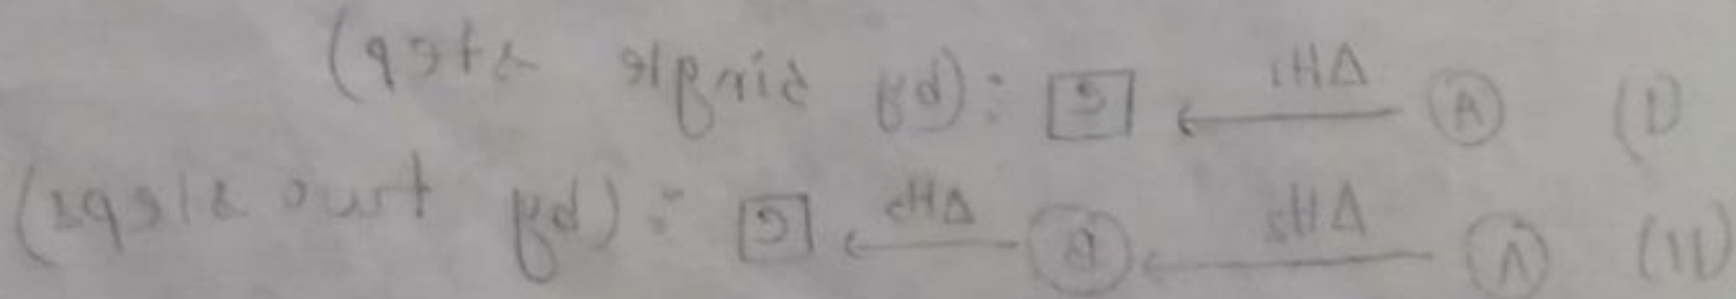 (I) A → ΔH₁ C : (by single step)
(II) A → ΔH₂ B → ΔH₃ C : (by two steps)